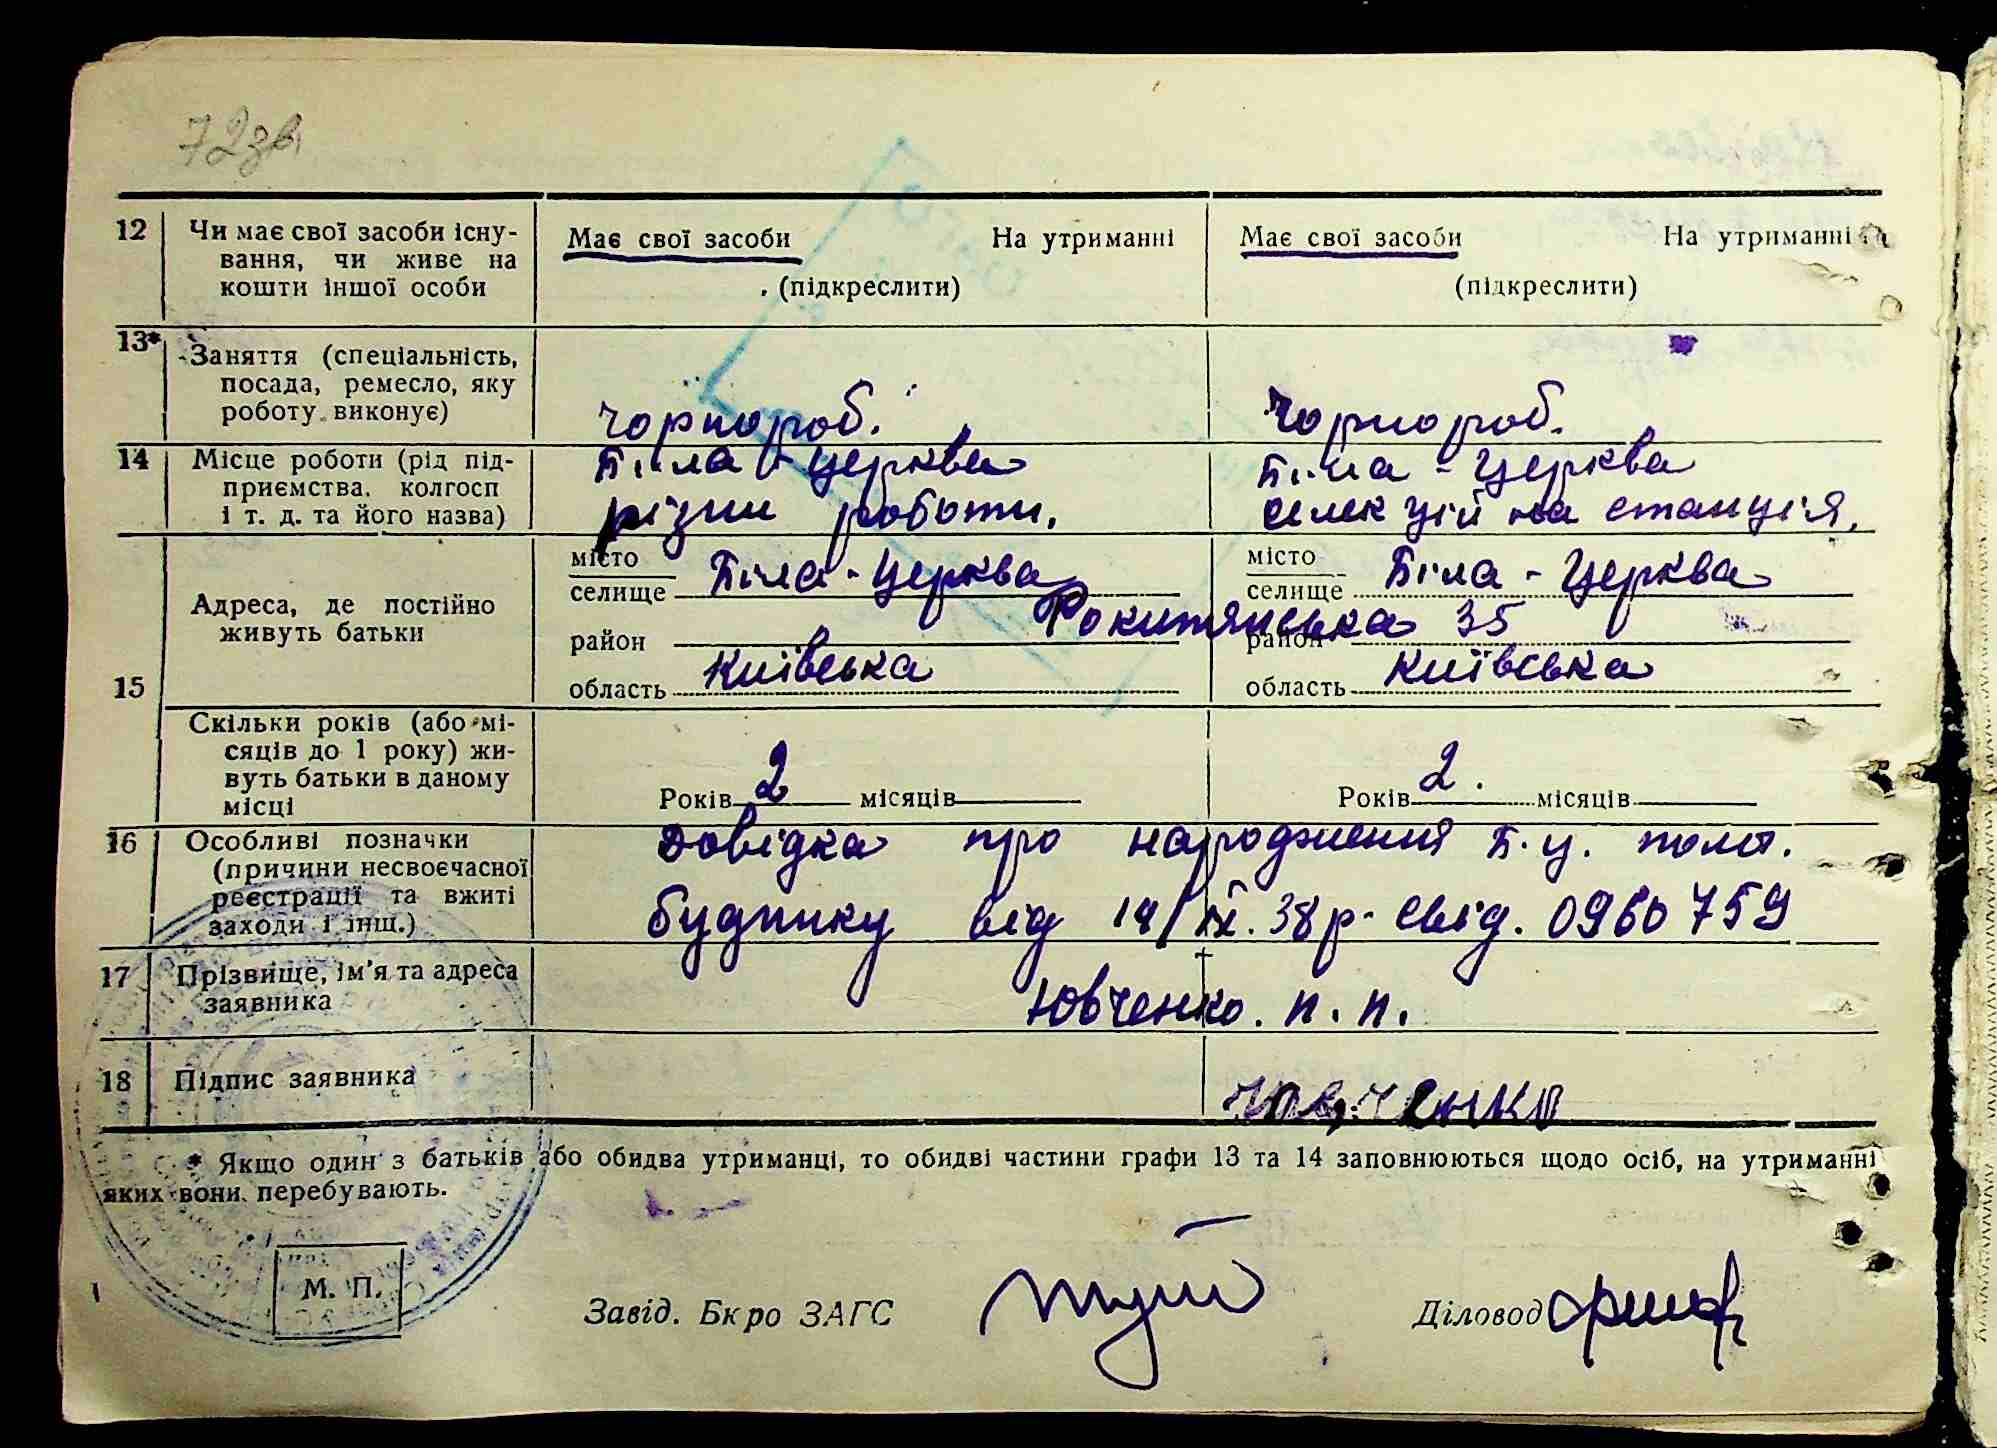 72зв
12 Чи має свої засоби існу-
вання, чи живе на
кошти іншої особи
Має свої засоби На утриманні
(підкреслити)
Має свої засоби На утриманні
(підкреслити)
13* Заняття (спеціальність,
посада, ремесло, яку
роботу виконує)
чорнороб.
чорнороб.
14 Місце роботи (рід під-
приємства, колгосп
і т. д. та його назва)
Біла-Церква
різни роботи.
Біла-Церква
селекційна станція.
15 Адреса, де постійно
живуть батьки
місто
селище Біла-Церква
район
область Київська
місто
селище Біла-Церква
Рокитянська 35
район
область Київська
Скільки років (або мі-
сяців до 1 року) жи-
вуть батьки в даному
місці
Років 2 місяців
Років 2. місяців
16 Особливі позначки
(причини несвоєчасної
реєстрації та вжиті
заходи і інш.)
Довідка про народження Б.Ц. полог.
будинку від 14/IX.38р. свід. 0960759
17 Прізвище, ім'я та адреса
заявника
Ювченко. П. П.
18 Підпис заявника
Ювченко
* Якщо один з батьків або обидва утриманці, то обидві частини графи 13 та 14 заповнюються щодо осіб, на утриманні
яких вони перебувають.
М. П.
Завід. Бюро ЗАГС
Діловод